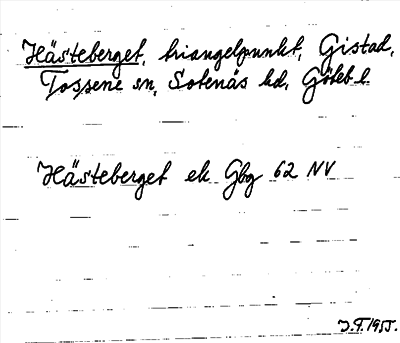 Hästeberget, triangelpunkt, Gistad,
Tossene sn, Sotenäs hd, Göteb l.
Hästeberget ek Gbg 62 NV
J.F. 1955.